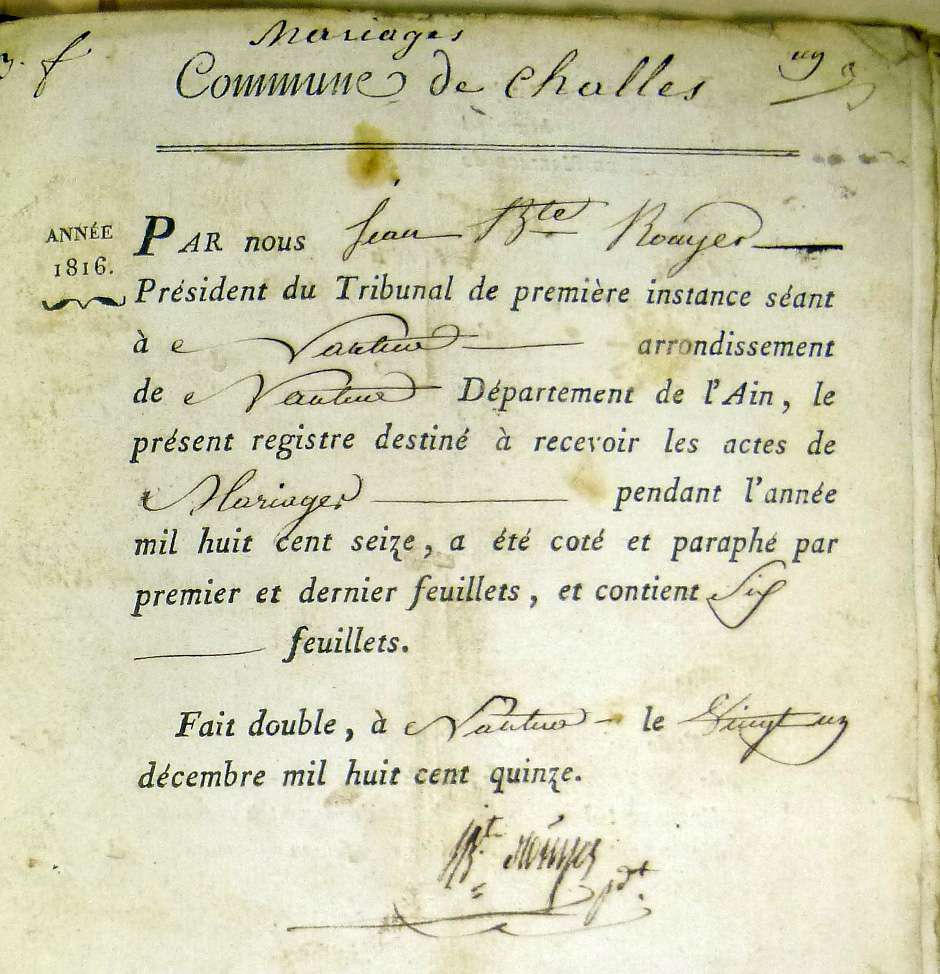 Mariages
Commune de Challes
un
ANNÉE
1816.
PAR nous Jean Bte Rouyer
Président du Tribunal de première instance séant
à Nantua arrondissement
de Nantua Département de l'Ain, le
présent registre destiné à recevoir les actes de
Mariages pendant l'année
mil huit cent seize, a été coté et paraphé par
premier et dernier feuillets, et contient Six
feuillets.
Fait double, à Nantua le Vingt un
décembre mil huit cent quinze.
Bt Rouyer
pdt.